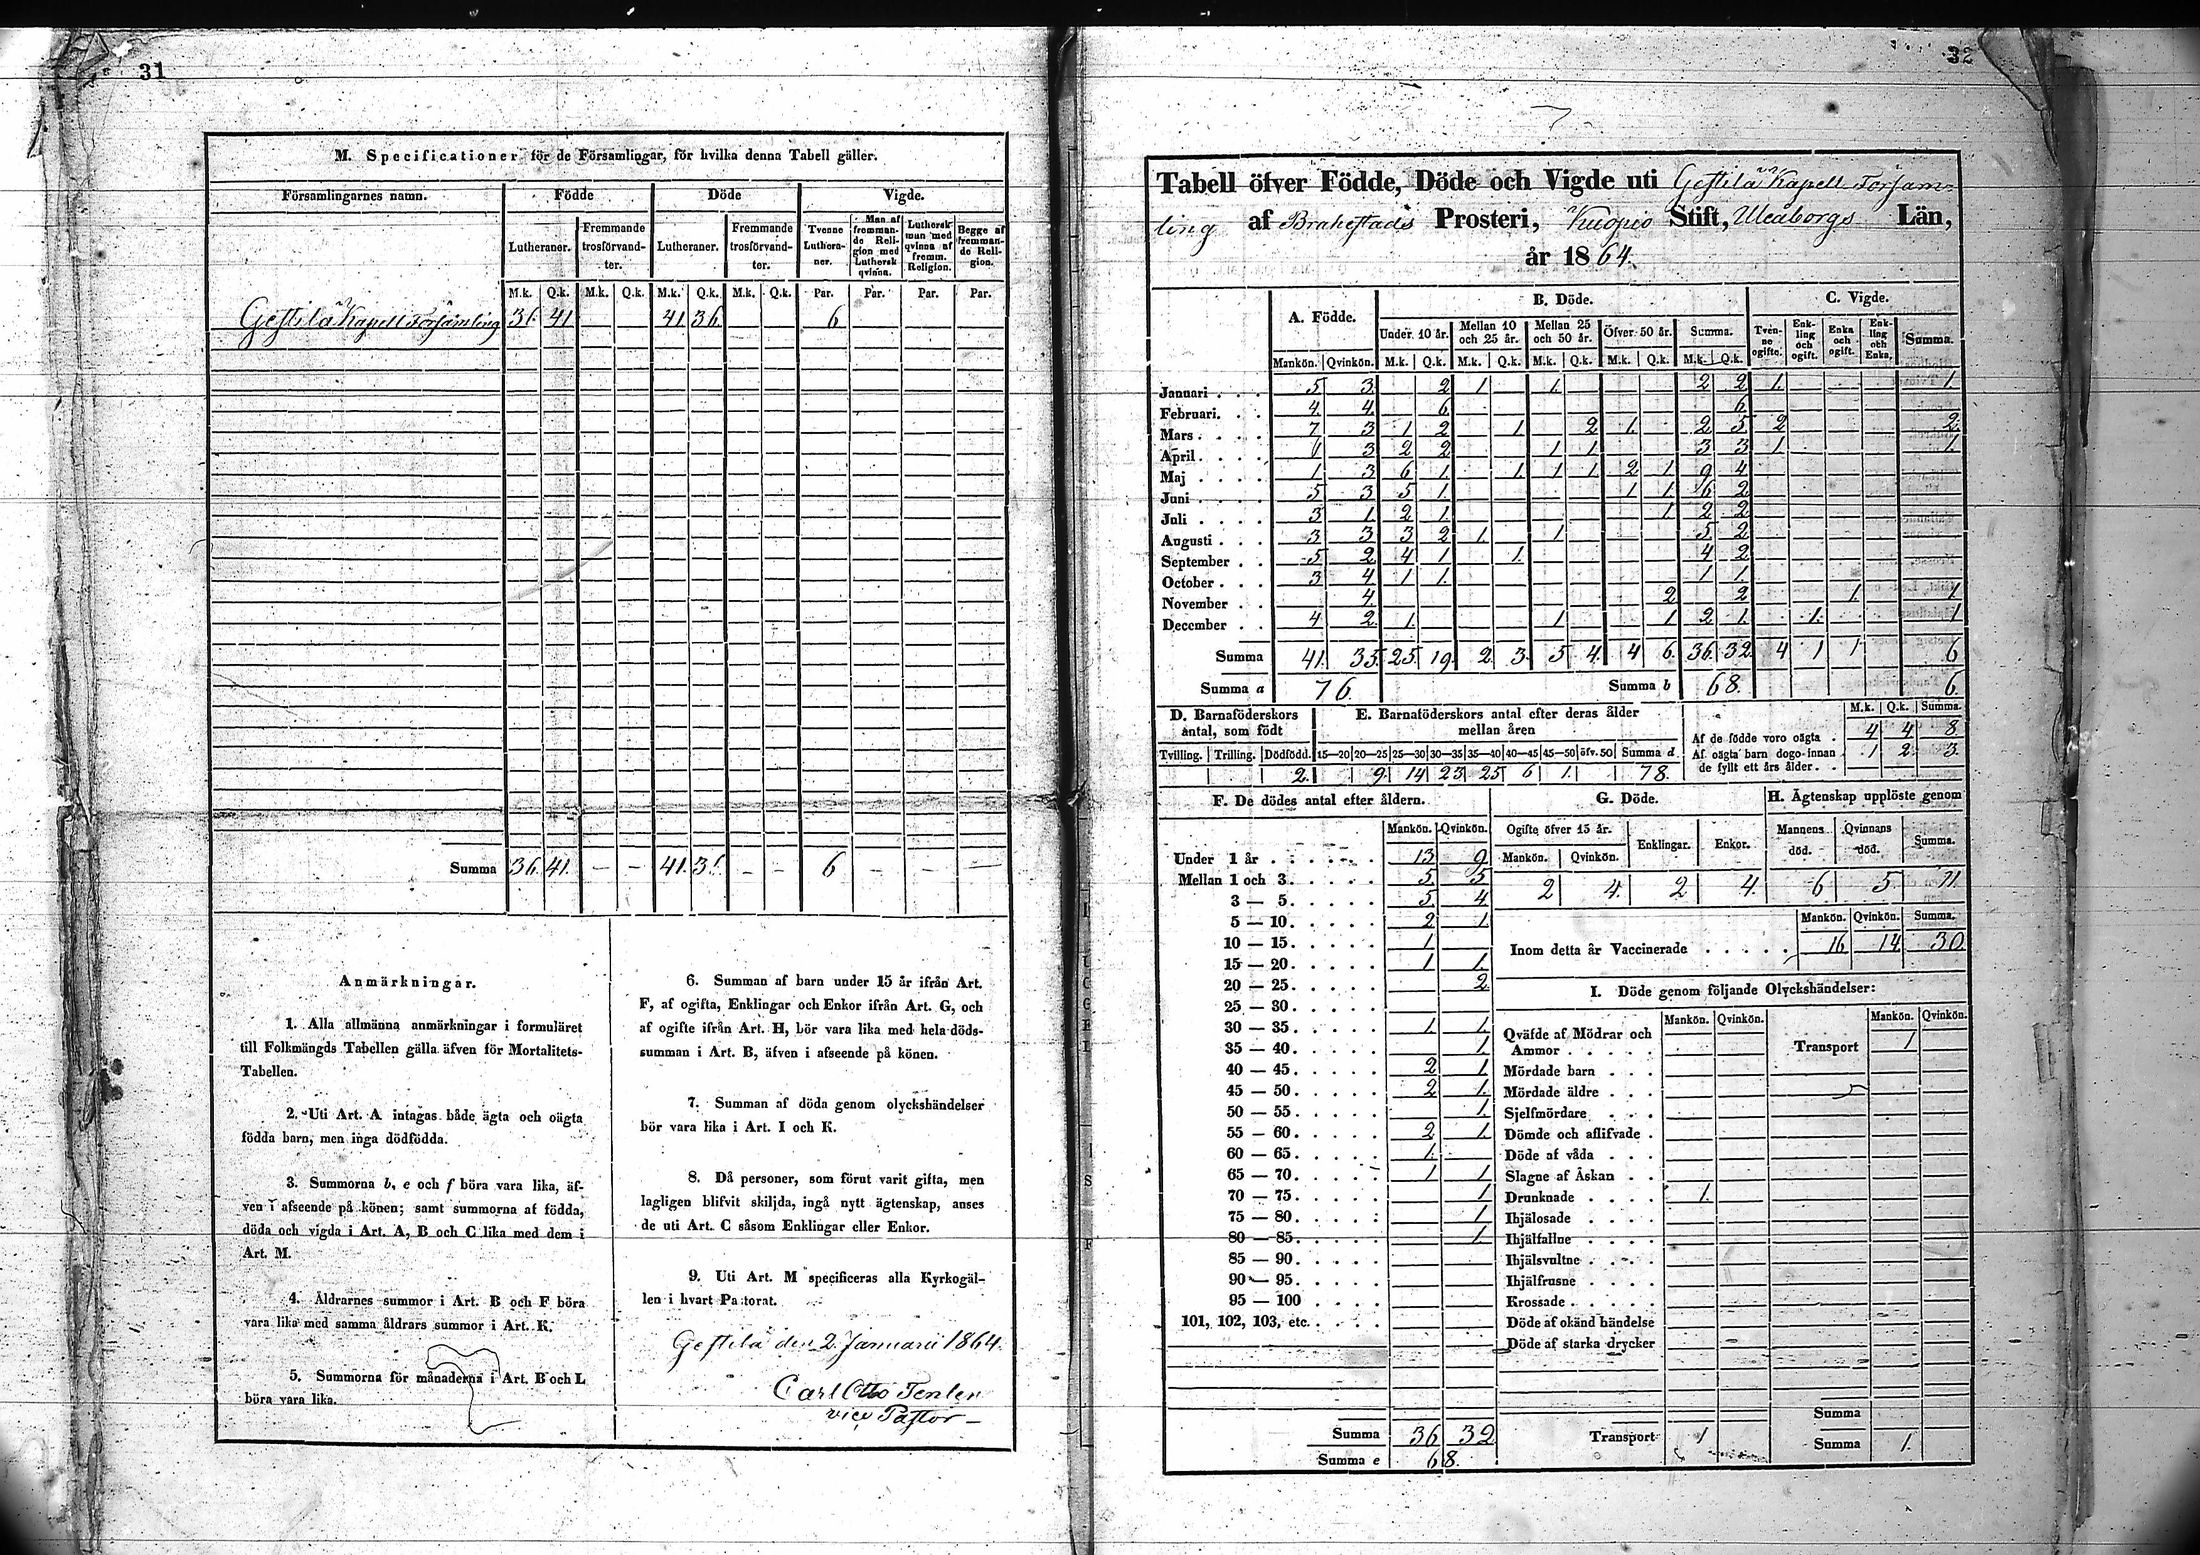 31
M. Specificationer för de Församlingar, för hvilka denna Tabell gäller.
Församlingarnes namn. Födde Döde Vigde.
Lutheraner. Fremmande trosförvandter. Lutheraner. Fremmande trosförvandter. Tvenne Lutheraner. Man af fremmande Religion med Luthersk qvinna. Luthersk man med qvinna af fremm. Religion. Begge af fremmande Religion.
M.k. Q.k. M.k. Q.k. M.k. Q.k. M.k. Q.k. Par. Par. Par. Par.
Gestilä Kapell Församling 36. 41 41 36. 6
Summa 36. 41. – – 41. 36. – – 6 – – –
Anmärkningar.
1. Alla allmänna anmärkningar i formuläret
till Folkmängds Tabellen gälla äfven för Mortalitets-
Tabellen.
2. Uti Art. A intagas både ägta och oägta
födda barn, men inga dödfödda.
3. Summorna b, e och f böra vara lika, äf-
ven i afseende på könen; samt summorna af födda,
döda och vigda i Art. A, B och C lika med dem i
Art. M.
4. Åldrarnes summor i Art. B och F böra
vara lika med samma åldrars summor i Art. K.
5. Summorna för månaderna i Art. B och L
böra vara lika.
6. Summan af barn under 15 år ifrån Art.
F, af ogifta, Enklingar och Enkor ifrån Art. G, och
af ogifte ifrån Art. H, bör vara lika med hela döds-
summan i Art. B, äfven i afseende på könen.
7. Summan af döda genom olyckshändelser
bör vara lika i Art. I och K.
8. Då personer, som förut varit gifta, men
lagligen blifvit skiljda, ingå nytt ägtenskap, anses
de uti Art. C såsom Enklingar eller Enkor.
9. Uti Art. M specificeras alla Kyrkogäl-
len i hvart Pastorat.
Gestilä den 2 Januarii 1864.
Carl Otto
vice Pastor
32
Tabell öfver Födde, Döde och Vigde uti Gestilä Kapell Försam-
ling af Brahestads Prosteri, Kuopio Stift, Uleåborgs Län,
år 1864.
A. Födde. B. Döde. C. Vigde.
Under 10 år. Mellan 10 och 25 år. Mellan 25 och 50 år. Öfver 50 år. Summa. Tvenne ogifte. Enkling och ogift. Enka och ogift. Enkling och Enka. Summa.
Mankön. Qvinkön. M.k. Q.k. M.k. Q.k. M.k. Q.k. M.k. Q.k. M.k. Q.k.
Januari 5 3 2 1 1. 2 2 1. 1.
Februari. 4 4 6 6
Mars 7 3 1 2 1 2 1. 2 5 2 2.
April 1 3 2 2 1 1 3 3 1 1.
Maj 1 3 6 1 1 1 1 2 1 9 4
Juni 5 3 5 1 1 1 6 2
Juli 3 1 2 1 1 2 2
Augusti 3 3 3 2 1 1 5 2
September 5 2 4 1 1. 4 2
October 3 4 1 1. 1 1.
November 4. 2 2 1. 1
December 4 2 1. 1 1 2 1. 1. 1
Summa 41. 35 25. 19. 2. 3. 5 4. 4 6. 36. 32 4 1 1 6
Summa a 76. Summa b 68. 6.
D. Barnaföderskors antal, som födt
E. Barnaföderskors antal efter deras ålder mellan åren
M.k. Q.k. Summa.
Af de födde voro oägta 4 4 8
Af oägta barn dogo innan de fyllt ett års ålder 1 2 3
Tvilling. Trilling. Dödfödd. 15—20 20—25 25—30 30—35 35—40 40—45 45—50 öfv. 50 Summa d
2. 9. 14 23 25 6 1. 78.
F. De dödes antal efter åldern. G. Döde. H. Ägtenskap upplöste genom
Mankön. Qvinkön. Ogifte öfver 15 år. Enklingar. Enkor. Mannens död. Qvinnans död. Summa.
Mankön. Qvinkön.
2 4. 2 4. 6 5. 11.
Mankön. Qvinkön. Summa.
Inom detta år Vaccinerade 16 14 30
Under 1 år 13 9
Mellan 1 och 3 5 5
3 — 5 5 4
5 — 10 2 1
10 — 15 1
15 — 20 1 1.
20 — 25 2
25 — 30
30 — 35 1 1.
35 — 40 1.
40 — 45 2 1
45 — 50 2 1.
50 — 55 1.
55 — 60 2 1.
60 — 65 1.
65 — 70 1 1
70 — 75 1
75 — 80 1
80 — 85 1.
85 — 90
90 — 95
95 — 100
101, 102, 103, etc.
Summa 36 32
Summa e 68.
I. Döde genom följande Olyckshändelser:
Mankön. Qvinkön. Mankön. Qvinkön.
Qväfde af Mödrar och
Ammor Transport 1
Mördade barn
Mördade äldre
Sjelfmördare
Dömde och aflifvade
Döde af våda
Slagne af Åskan
Drunknade 1.
Ihjälosade
Ihjälfallne
Ihjälsvultne
Ihjälfrusne
Krossade
Döde af okänd händelse
Döde af starka drycker
Summa
Transport 1 Summa 1.